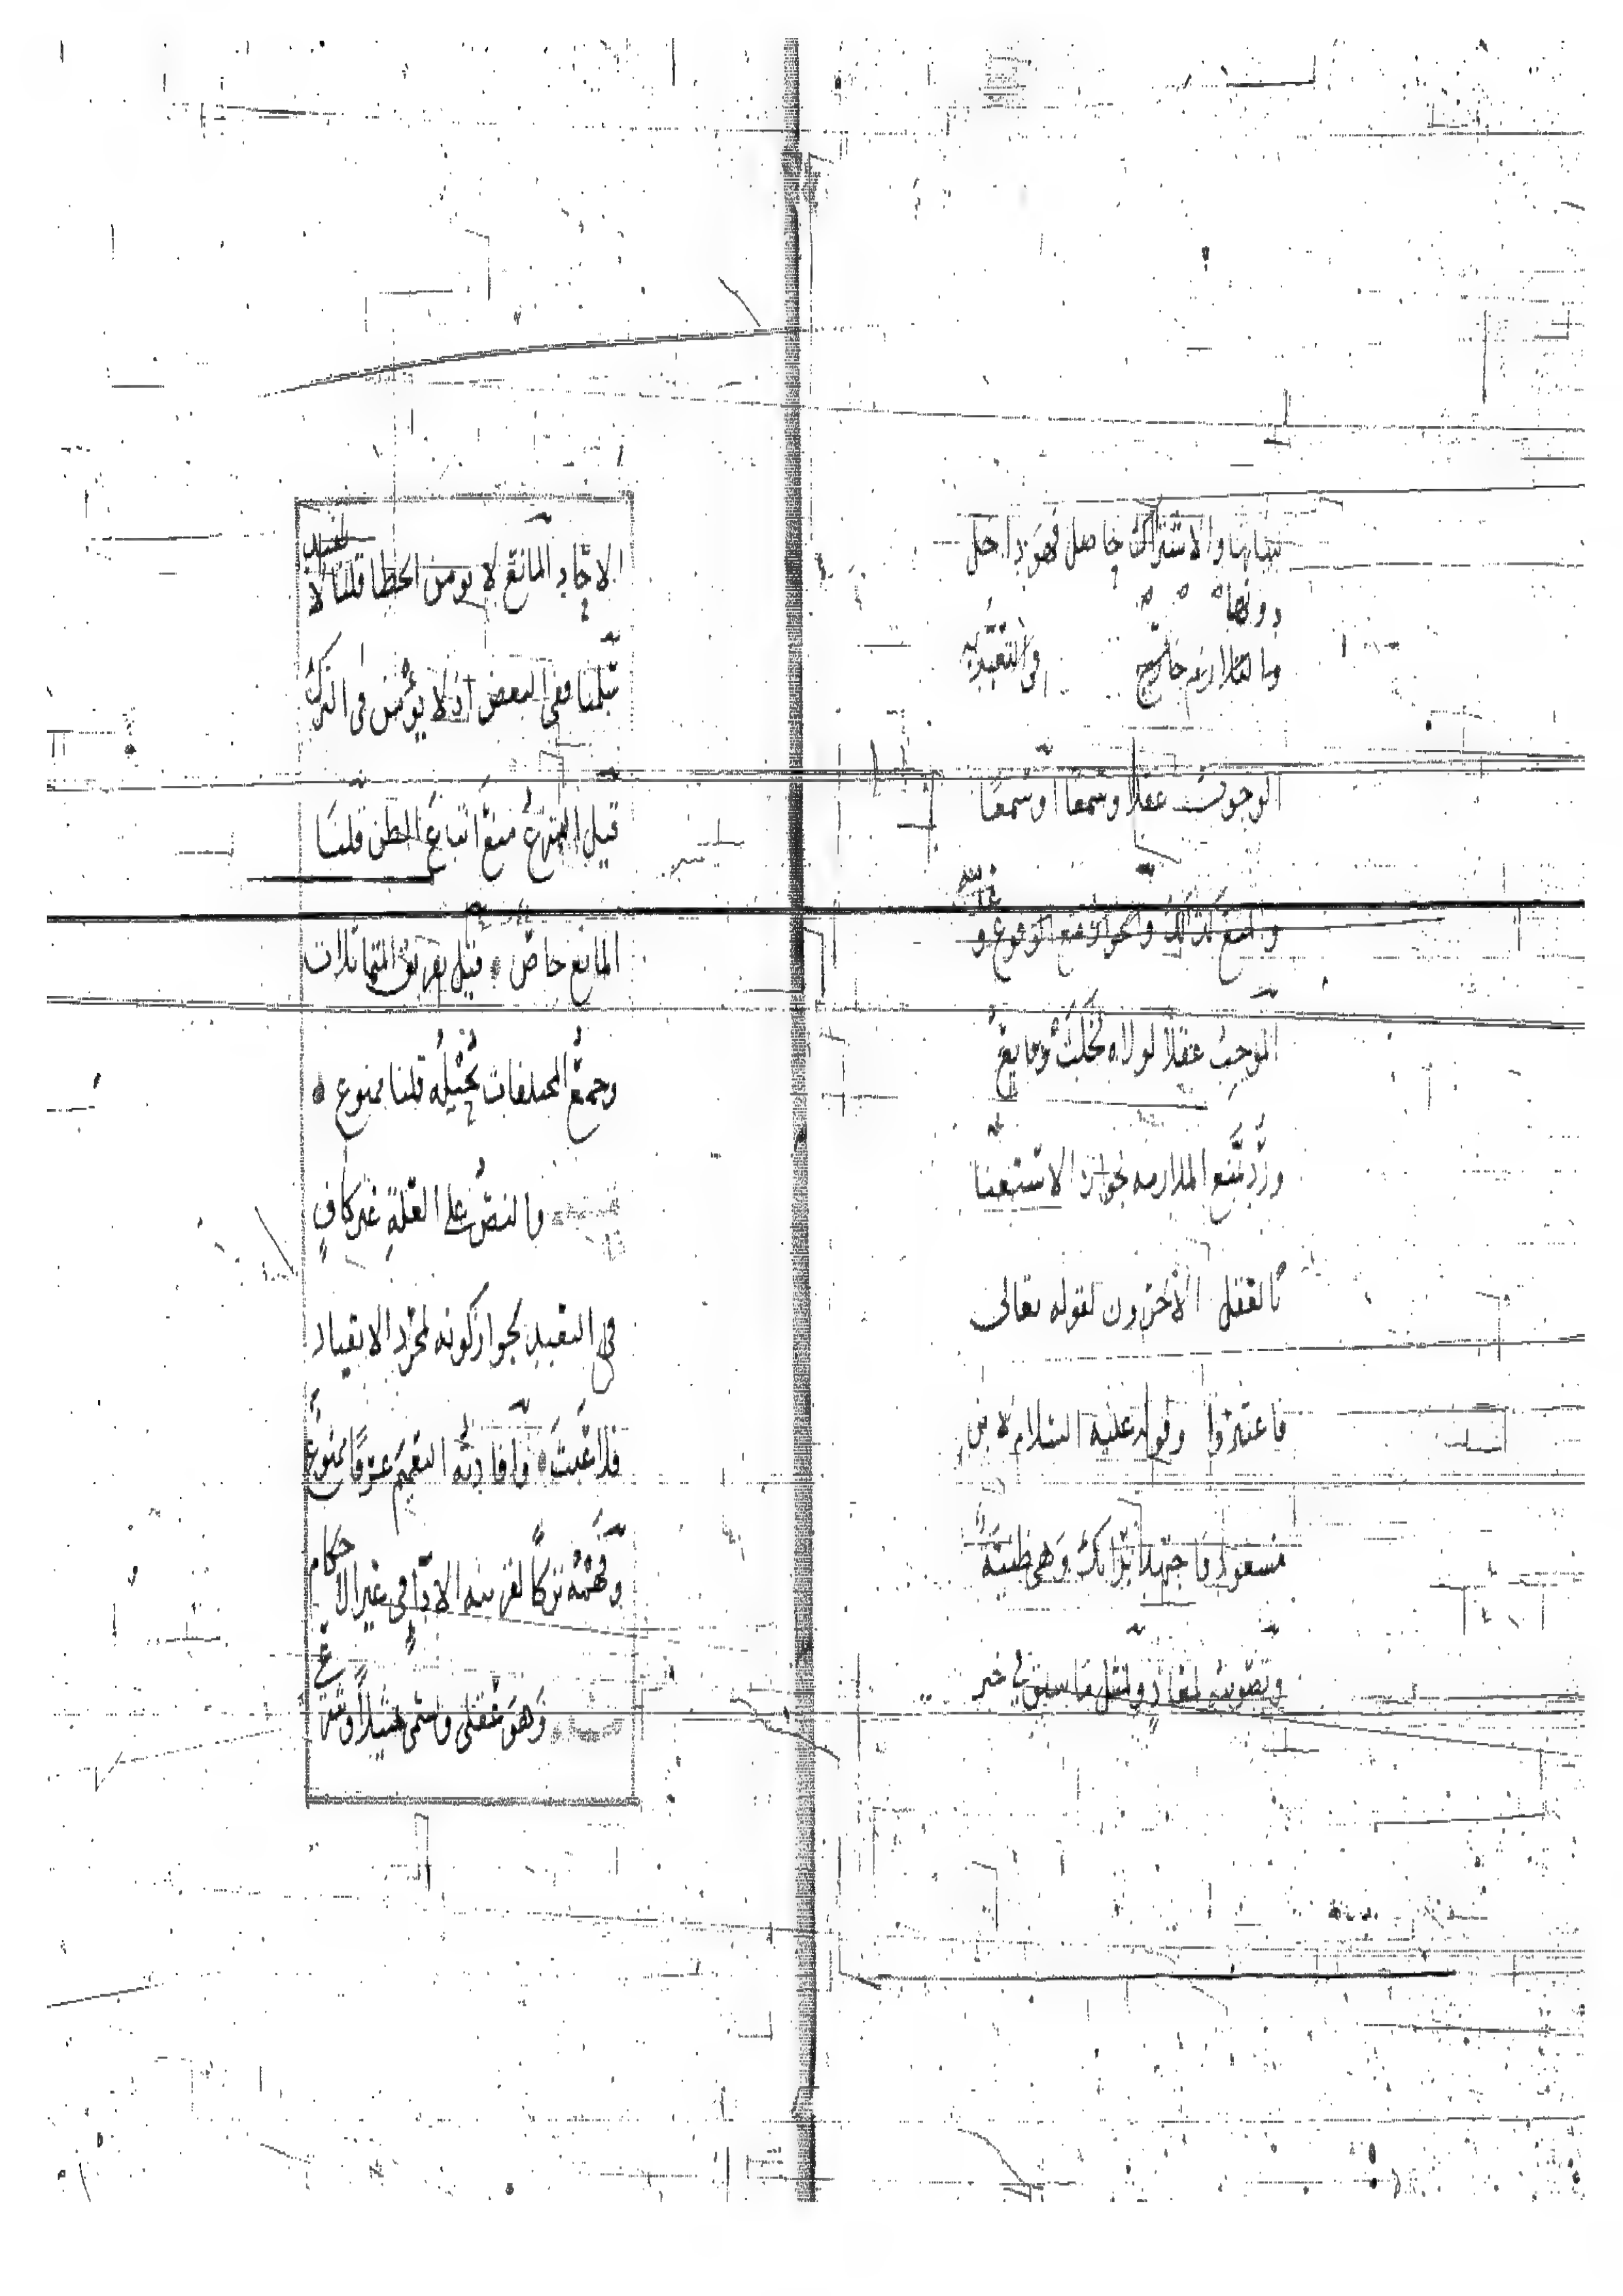 والاشتراك حاصل فهو داخل
دونها
وبالملازمه خارج وفي التعبد به
الوجوب عقلا وسمعا او سمعا
والمنع كذلك والجواز مع الوقوع و
الموجب عقلا لولاه لخلت وقايع
ورد بمنع الملازمه لجواز الاستغنا
بالعقل الاخرون لقوله تعالى
فاعتبروا وقوله عليه السلام لابن
مسعود فاجتهد برايك وهي ظنية
وتصويبه لمعاذ ولمثل ما سبق في خبر
الاحاد المانع لا يومن الخطا قلنا لا
قلنا ففي البعض اذ لا يؤمن في الترك
قيل الشرع منع اتباع الظن قلنا
المانع خاص قيل تفريق المتماثلات
وجمع المختلفات يحيله قلنا ممنوع
والنص على العلة غير كاف
في التعبد لجواز كونه لمجرد الانقياد
فلا عبث وافادته التعميم عرفا ممنوع
وفهمه تركا لقرينه الاذى في غير الاحكام
وهو عقلي